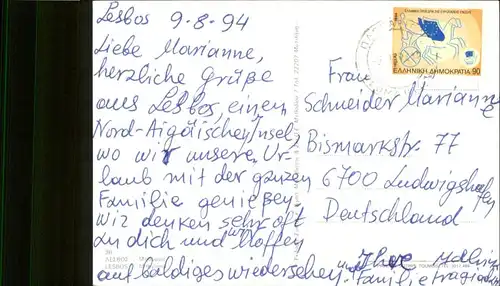 Lesbos 9-8-94
Liebe Marianne,
herzliche Grüße
aus Lesbos, einen
Nord-Aigäischen Insel,
wo wir unsere Ur-
laub mit der ganzen
Familie genießen.
Wir denken sehr oft
an dich und hoffen
auf baldiges wiedersehen.
Ihre
Familie
Frau
Schneider Marianne
Bismarkstr. 77
6700 Ludwigshafen
Deutschland
ΕΛΛΗΝΙΚΗ ΔΗΜΟΚΡΑΤΙΑ 90
LESBOS